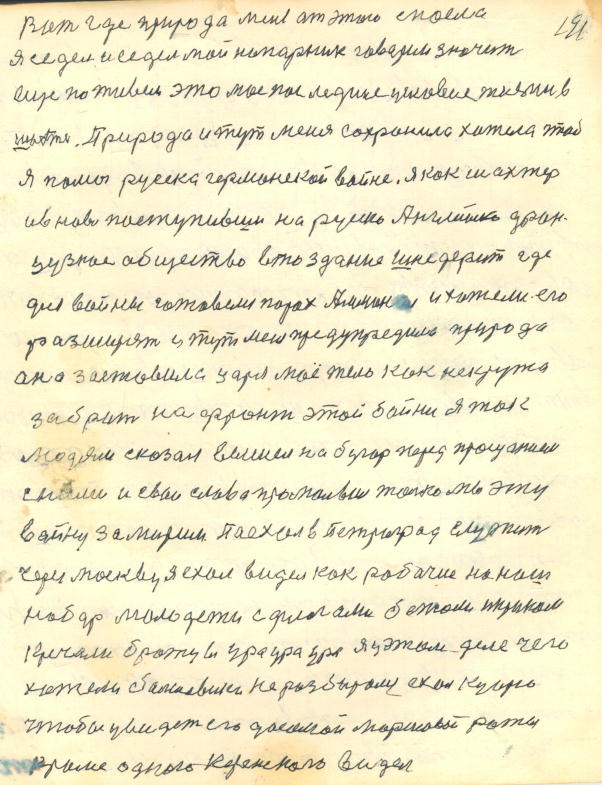 Вот где природа меня от этого спасла
191
Я седел и седел мой напарник говарит значет
еще по живем это мое последние условие жизни в
шахти. Природа и тут меня сохронила хотела чтоб
я помог русска германской войне. Я как шахтер
и в ново поступивши на русско Английско фран-
цузкое общество в то здание где
для войны готовели порох и хотели его
разширят и тут меня предупредила природа
она заставила царя моё тело как некрута
забрат на фронт этой войни Я так
людям сказал вышел на бугор перед прощанием
с ними и свои слова промолвил только мы эту
войну замирим Поехал в Петроград служит
через москву я ехал видел как рабочие на наш
набор молодежи с флагами бежали криком
кричали братцы ура ура ура я у этом деле чего
хотели не разбирался ехал к царю
чтобы увидет его самой рожи
кроме одного Керенского видел